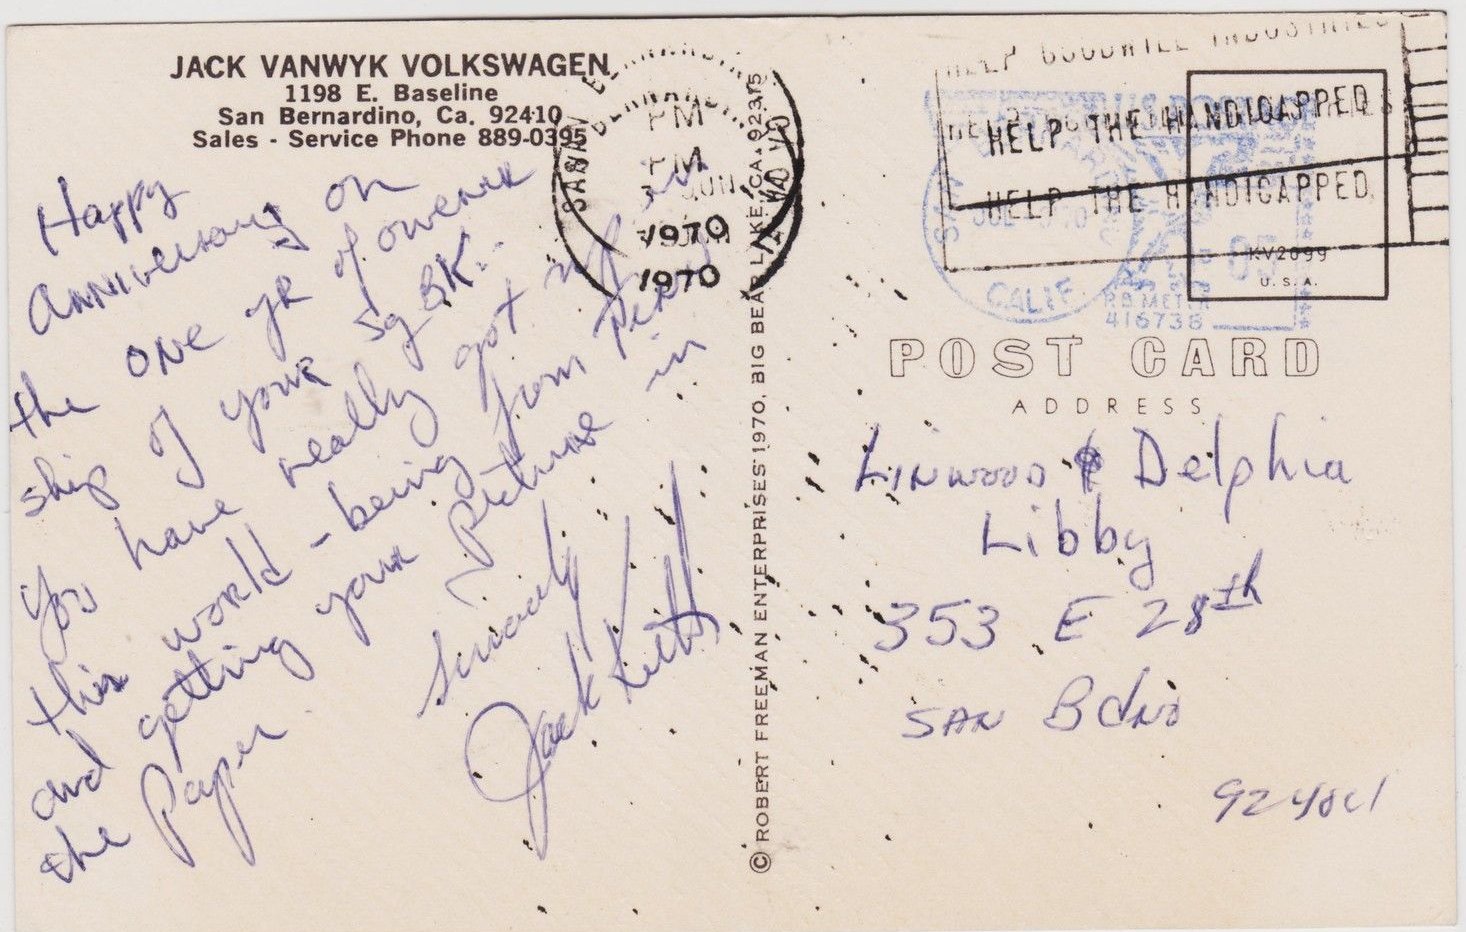 JACK VANWYK VOLKSWAGEN
1198 E. Baseline
San Bernardino, Ca. 92410
Sales - Service Phone 889-0395
Happy
Anniversary on
the one yr of owener
ship of your Sq BK.
You have really got up in
this world - being from
and getting your Picture in
the Paper
Sincerely
Jack
© ROBERT FREEMAN ENTERPRISES 1970, BIG BEAR LAKE, CA. 92315
PM
PM
JUN
1970
1970
HELP GOODWILL INDUSTRIES
HELP THE HANDICAPPED
HELP THE HANDICAPPED
SAN
CALIF
P.B. METER
416738
KV2099
U.S.A.
POST CARD
ADDRESS
Linwood & Delphia
Libby
353 E 28th
SAN Bdno
92404